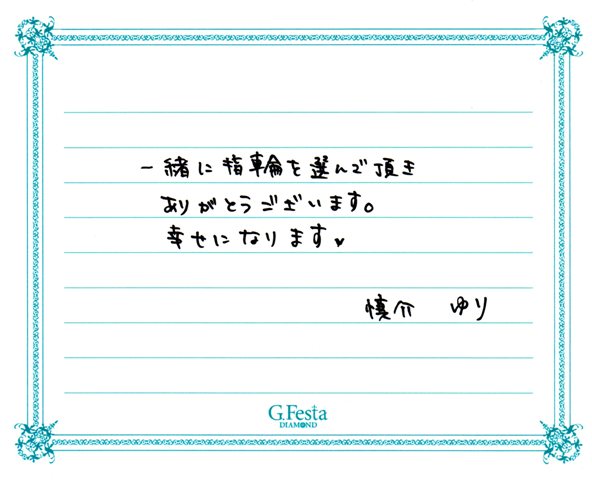 一緒に指輪を選んで頂き
ありがとうございます。
幸せになります♥
慎介 ゆり
G.Festa
DIAMOND